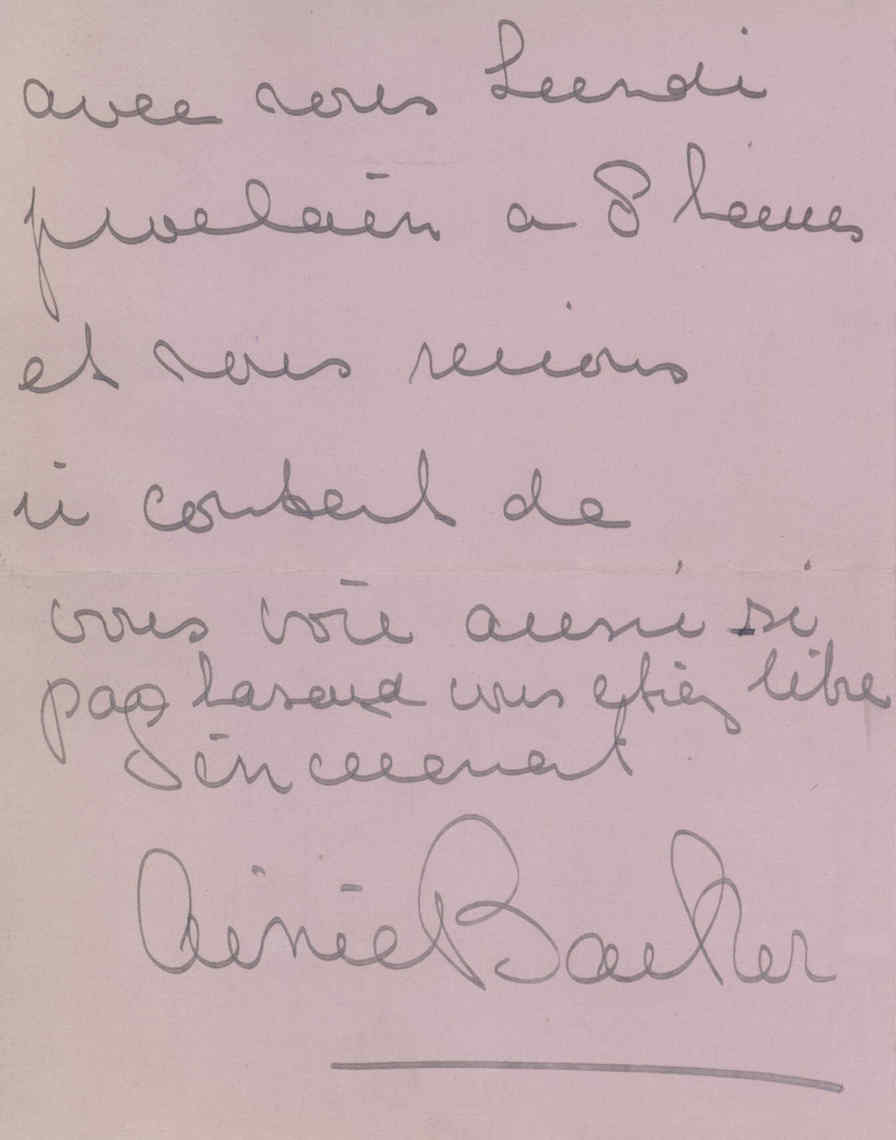 avec nous Lundi
prochain a 8 heures
et nous serions
si content de
vous voir aussi si
par hasard vous etiez libre
Sincerement
Barker